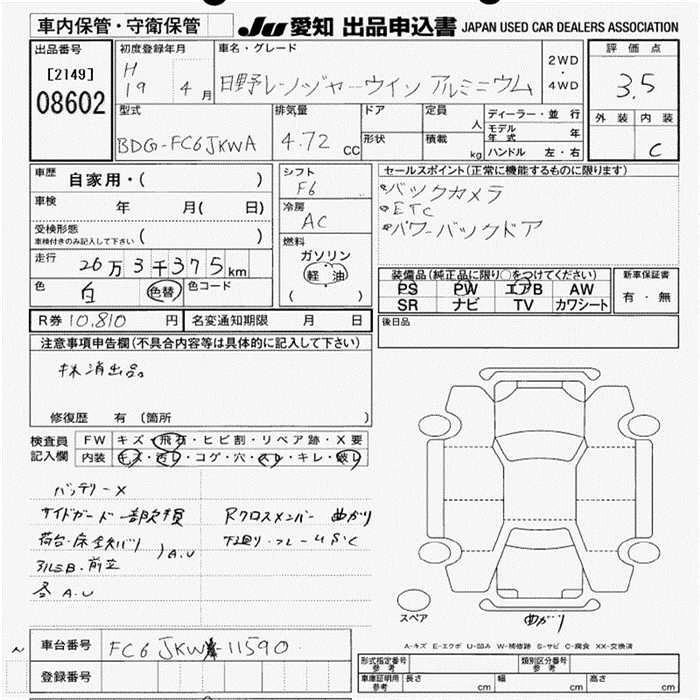 車内保管・守衛保管
JU 愛知 出品申込書 JAPAN USED CAR DEALERS ASSOCIATION
出品番号
[2149]
08602
初度登録年月
H
19 4 月
車名・グレード
日野レンジャーウイン アルミニウム
2WD
・
4WD
評価点
3.5
外装 内装
C
型式
BDG-FC6JKWA
排気量
4.72 CC
ドア
形状
定員 人
積載 kg
ディーラー・並行
モデル年式 年
ハンドル 左・右
車歴 自家用・( )
車検 年 月( 日)
受検形態
車検付きのみ記入して下さい ( )
走行 26万3千375km
色 白 色替 色コード
シフト
F6
冷房
AC
燃料
ガソリン
軽油
( )
セールスポイント(正常に機能するものに限ります)
バックカメラ
ETC
パワーバックドア
装備品(純正品に限り○をつけてください)
PS PW エアB AW
SR ナビ TV カワシート
新車保証書
有・無
後日品
R券 10,810 円 名変通知期限 月 日
注意事項申告欄(不具合内容等は具体的に記入して下さい)
抹消出品。
修復歴 有 (箇所 )
検査員
記入欄
FW キズ・飛石・ヒビ割・リペア跡・X要
内装 キズ・汚れ・コゲ・穴・スレ・キレ・破レ
バッテリーX
サイドガード一部欠損 Rクロスメンバー曲がり
荷台・床 鉄バリ )A.U 下廻り・フレームS、C
アルミB・前立
各A.U
曲がり
スペア
A-キズ E-エクボ U-凹み W-補修跡 S-サビ C-腐食 XX-交換済
車台番号 FC6JKW-11590
登録番号
形式指定番号
参考
類別区分番号
参考
車庫証明用
参考
長さ cm 幅 cm 高さ cm